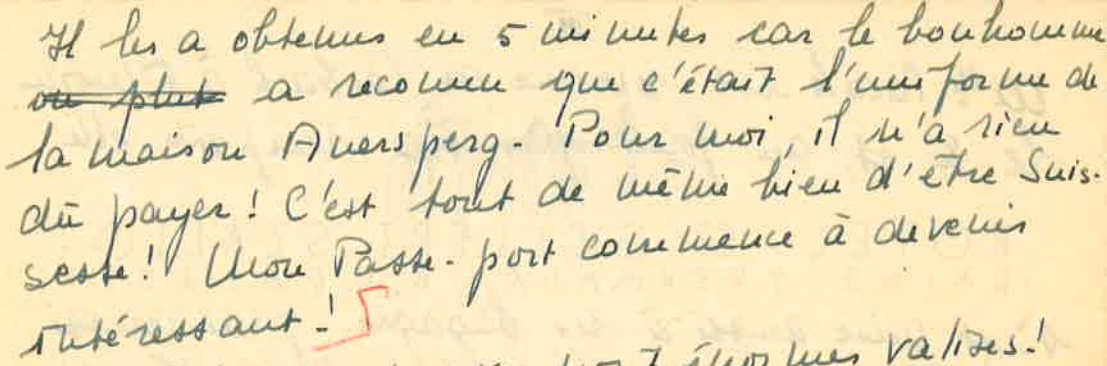 Il les a obtenus en 5 minutes car le bonhomme
ou plut a reconnu que c'était l'uniforme de
la maison Auersperg. Pour moi, il n'a rien
dû payer! C'est tout de même bien d'être Suis-
sesse! Mon Passe-port commence à devenir
intéressant!
énormes valises!